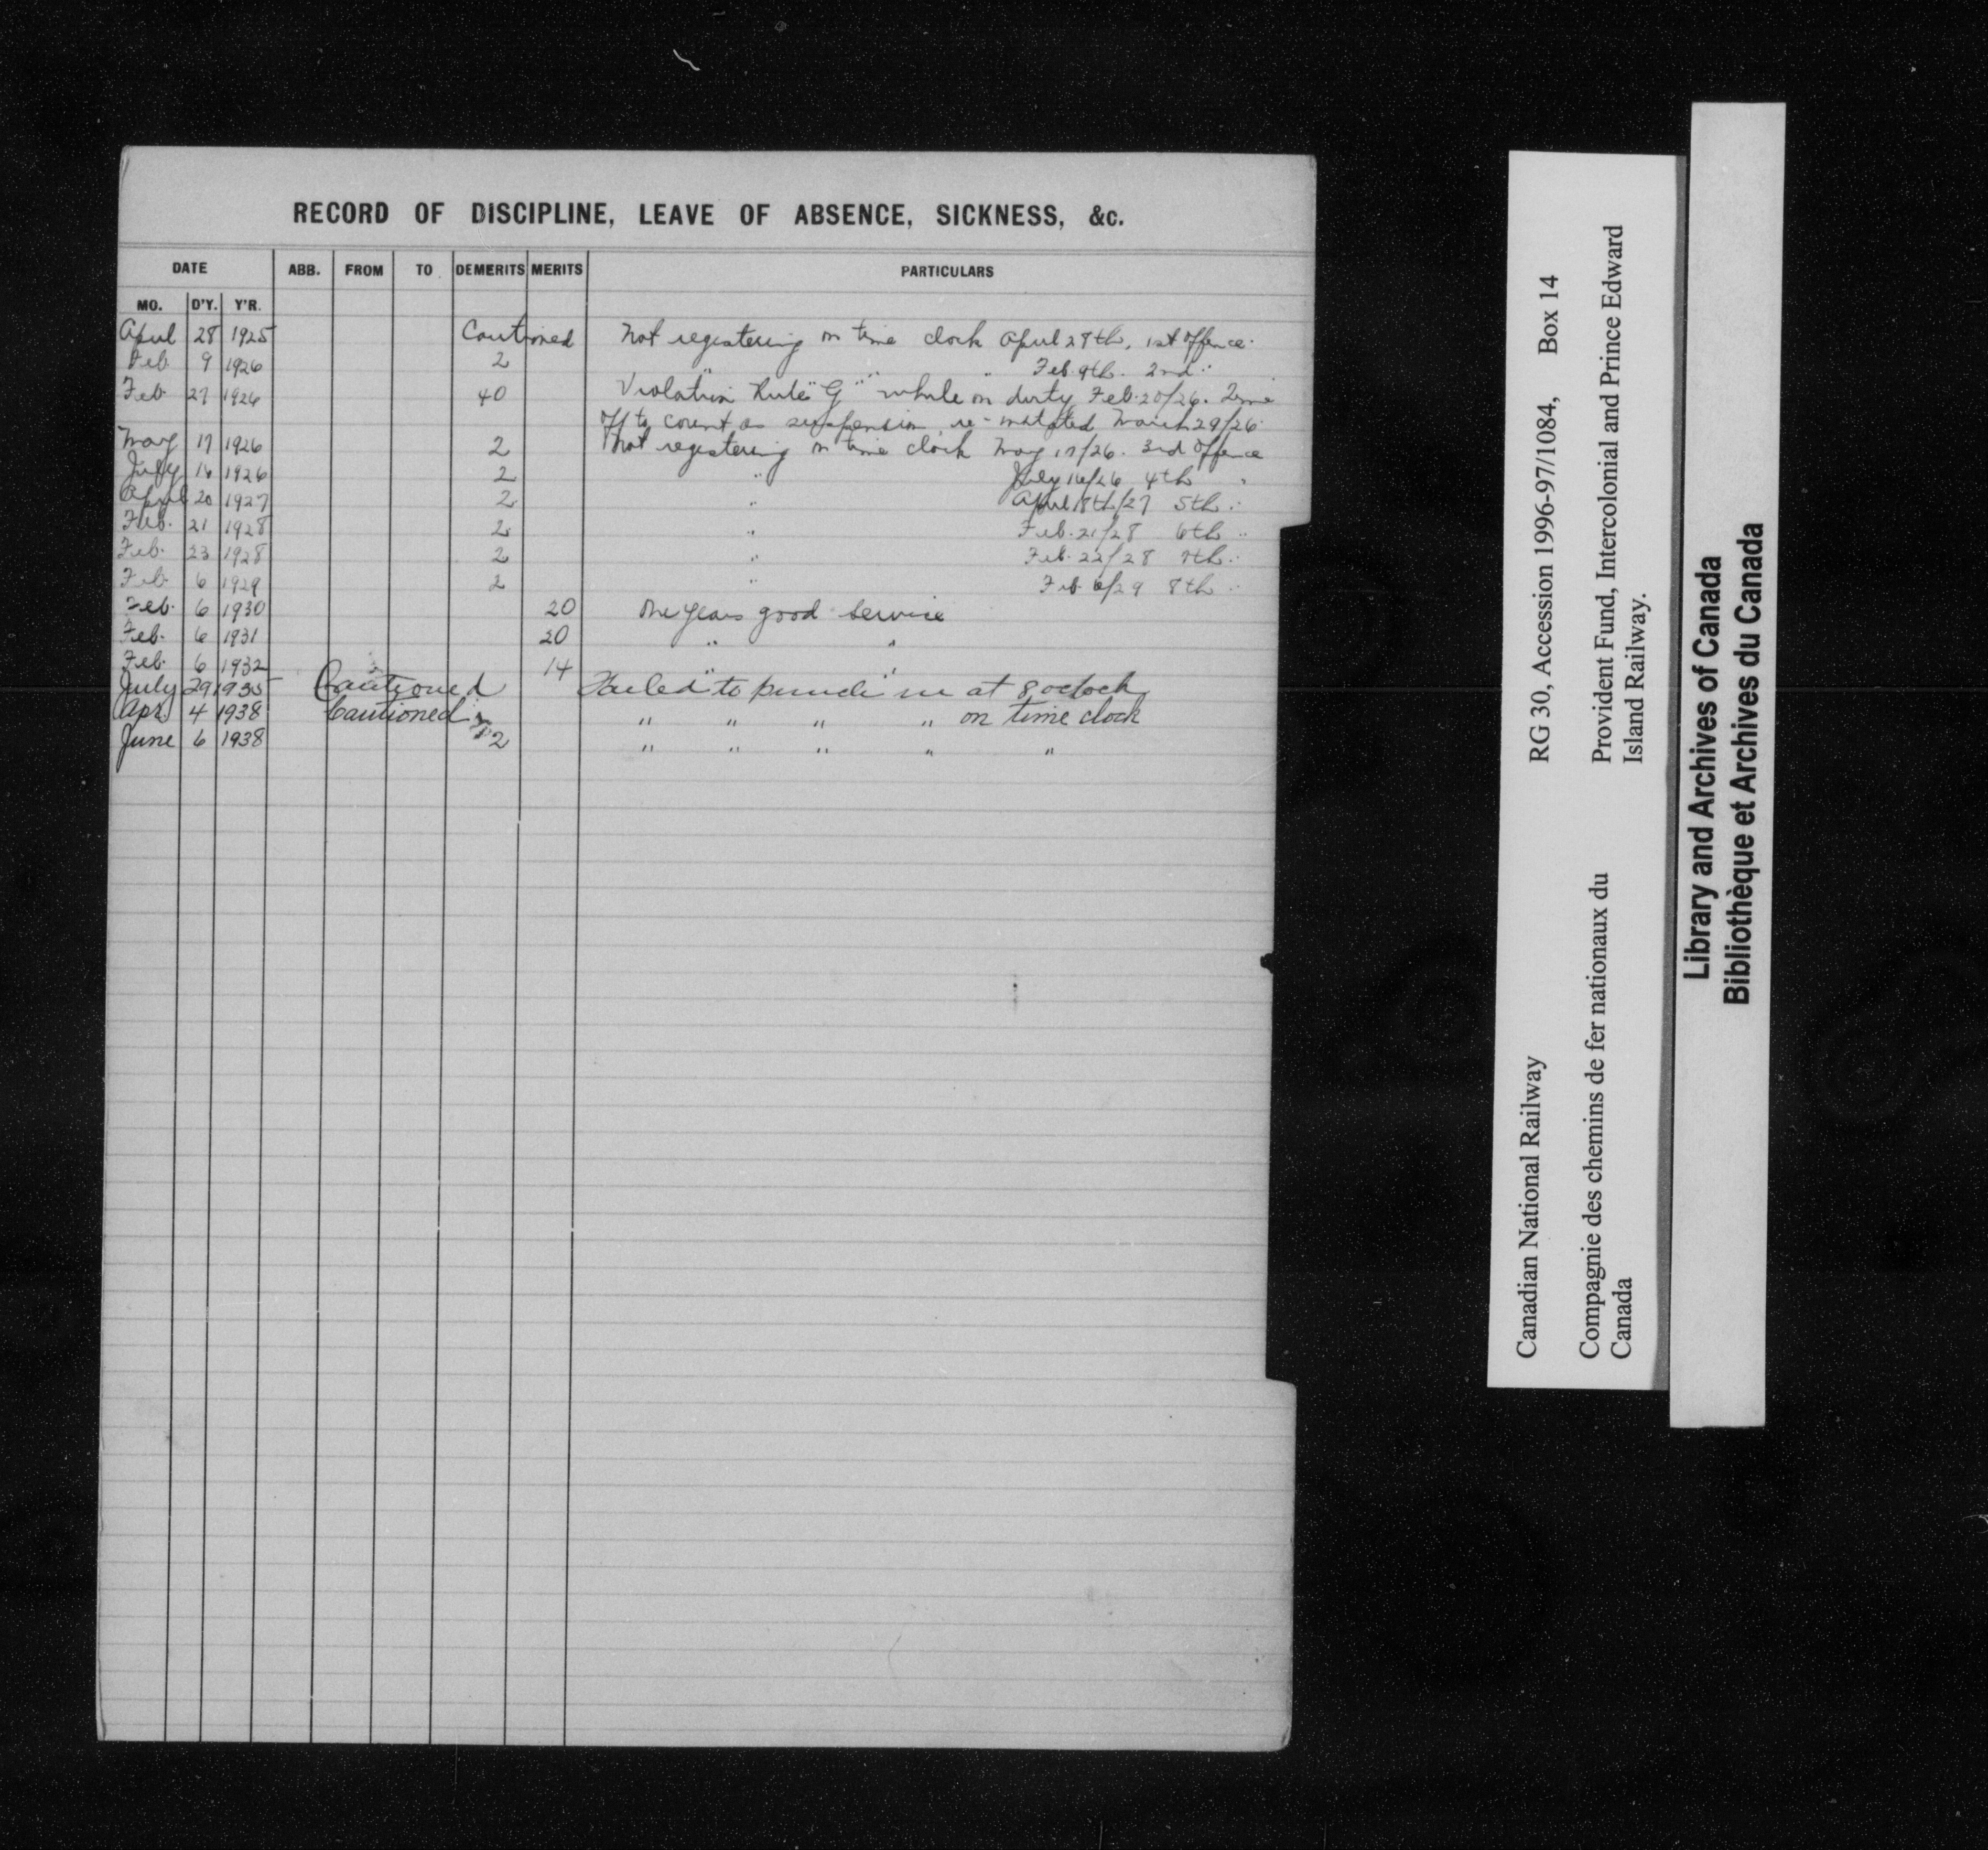 RECORD OF DISCIPLINE, LEAVE OF ABSENCE, SICKNESS, &c.
DATE ABB. FROM TO DEMERITS MERITS PARTICULARS
MO. D'Y. Y'R.
April 28 1925 Cautioned Not registering on time clock April 28th, 1st offence.
Feb. 9 1926 2 " " " Feb. 9th. 2nd "
Feb. 27 1926 40 Violation Rule "G" while on duty Feb. 20/26. Time
off to count as suspension, re-instated March 29/26.
May 17 1926 2 Not registering on time clock May 17/26. 3rd offence
July 16 1926 2 " July 16/26 4th "
April 20 1927 2 " April 18th/27 5th "
Feb. 21 1928 2 " Feb. 21/28 6th "
Feb. 23 1928 2 " Feb. 22/28 7th "
Feb. 6 1929 2 " Feb. 6/29 8th "
Feb. 6 1930 20 One years good service
Feb. 6 1931 20 " "
Feb. 6 1932 14 " "
July 29 1935 Cautioned Failed to punch in at 8 oclock
Apr. 4 1938 Cautioned " " " " on time clock
June 6 1938 2 " " " " "
Canadian National Railway RG 30, Accession 1996-97/1084, Box 14
Compagnie des chemins de fer nationaux du Provident Fund, Intercolonial and Prince Edward
Canada Island Railway.
Library and Archives of Canada
Bibliothèque et Archives du Canada